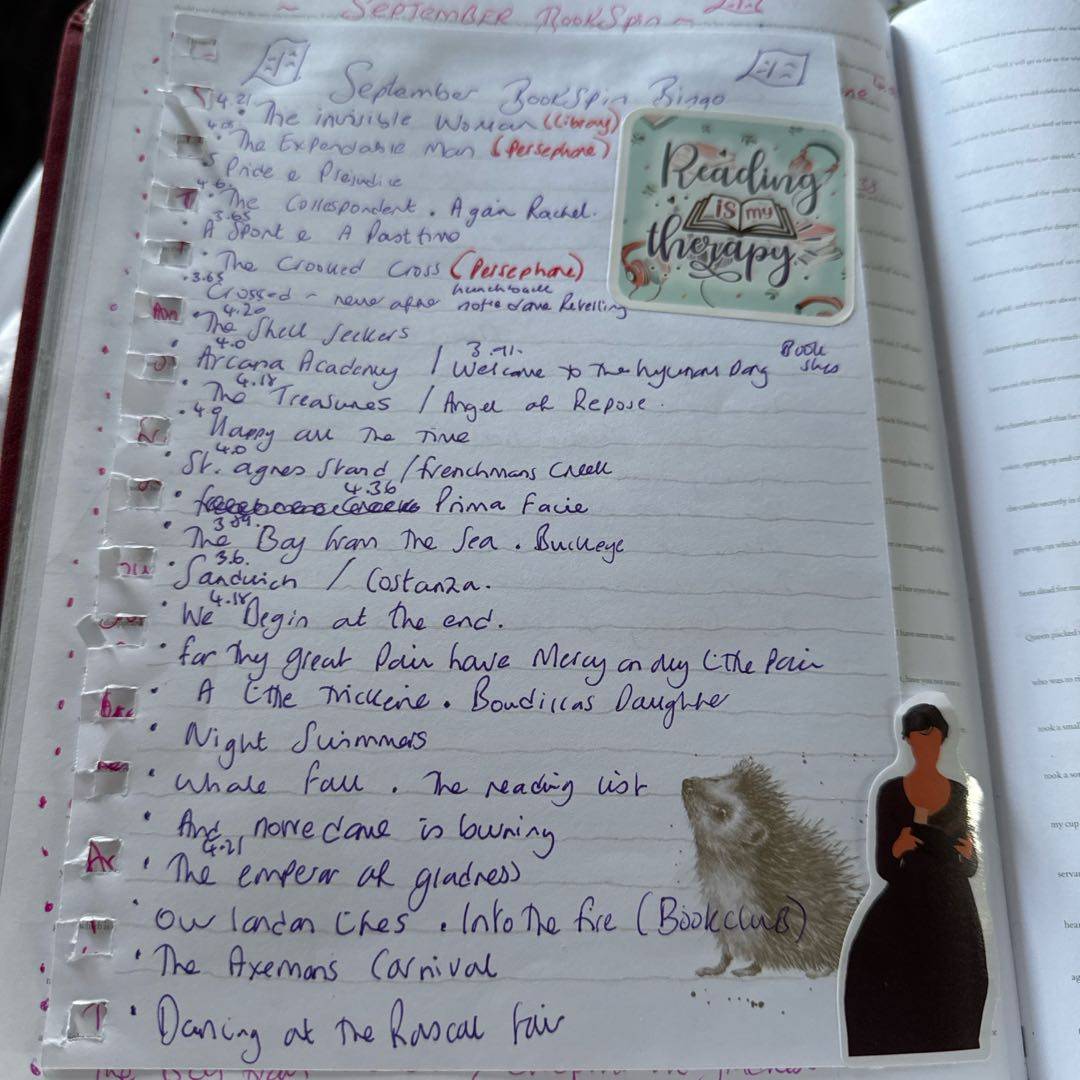 ~ SEPTEMBER BookSpin ~
September BookSpin Bingo
4.21
• The invisible Woman (Library)
4.05
• The Expendable Man (Persephone)
Pride & Prejudice
• The Correspondent. Again Rachel.
3.65
A Sport & A Pasttime
• The Crooked Cross (Persephone)
3.65
hunchback
Crossed - never after notre dame Retelling
4.20
• The Shell Seekers
4.0
3.71.
Book
• Arcana Academy / Welcome to The hyunam Dong
4.18
• The Treasures / Angel of Repose.
• Happy all The Time
4.0
• St. agnes Stand / frenchmans Creek
4.36
• Prima Facie
3.89.
The Boy from The Sea. Buckeye
3.6.
• Sandwich / Costanza.
4.18
• We Begin at the end.
• for Thy great Pain have Mercy on My little Pain
• A little Trickerie. Boudiccas Daughter
• Night Swimmers
• Whale fall. The reading list
• And notre dame is burning
4.21
• The emperor of gladness
• Our london lives. Into The fire (Bookclub)
• The Axemans Carnival
• Dancing at the Rascal fair
Reading
is my
therapy.